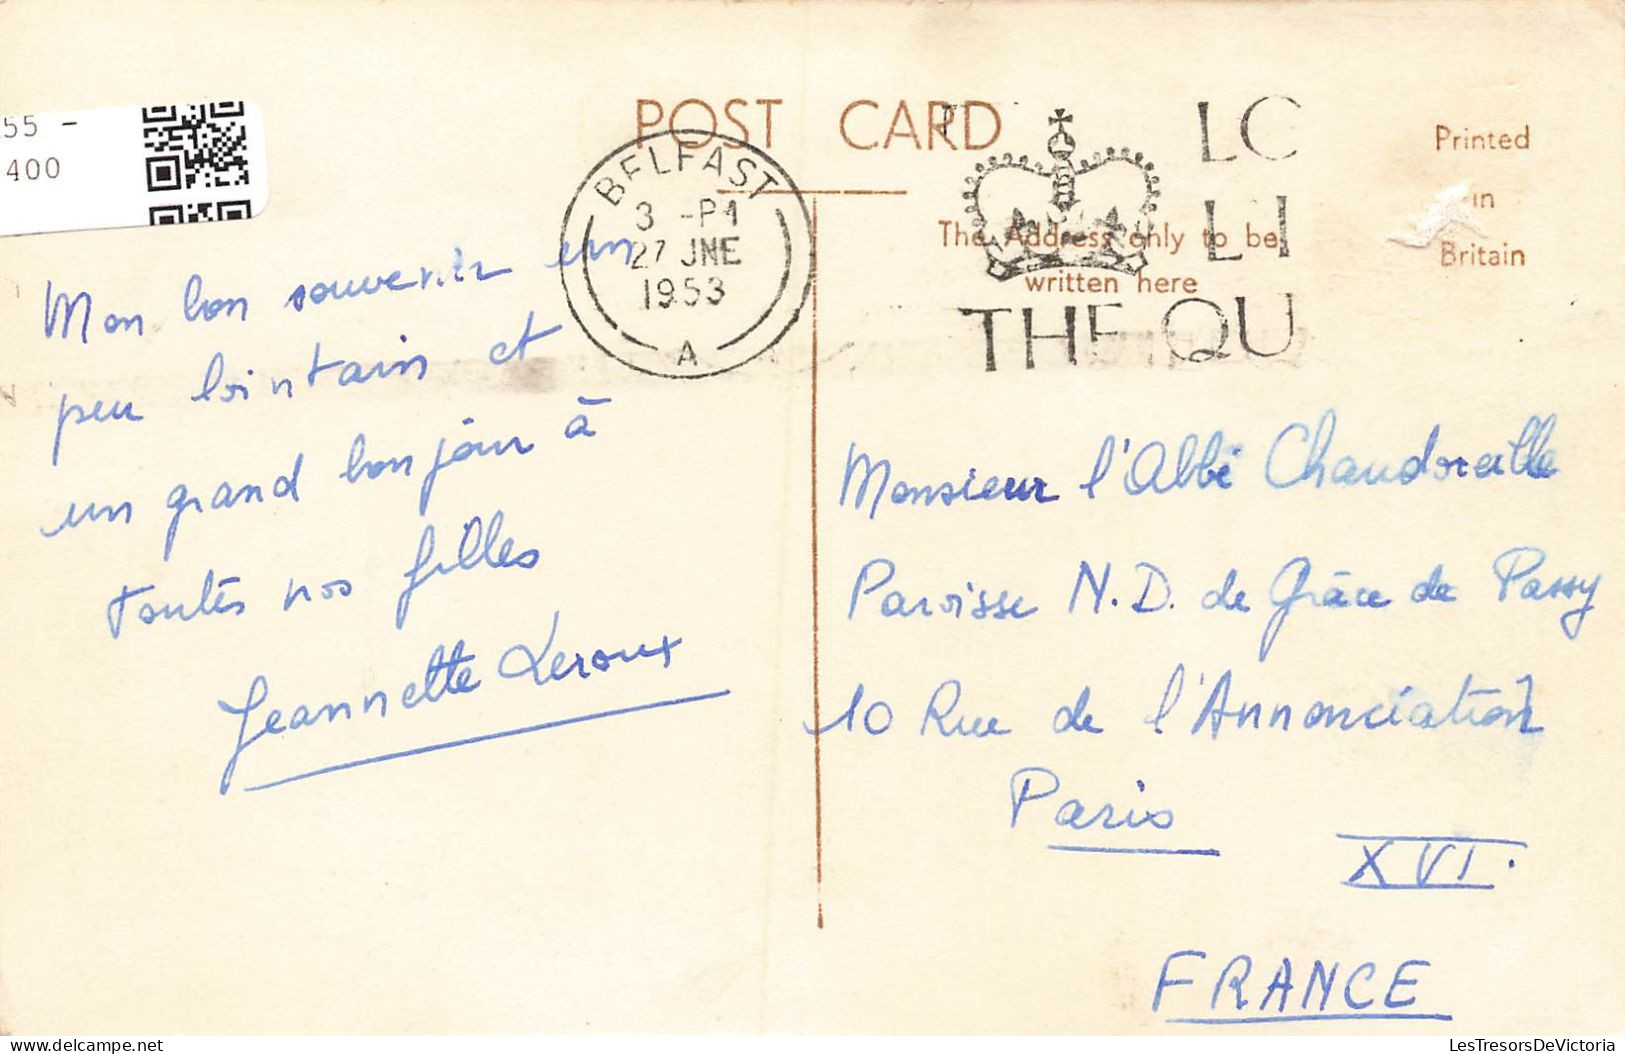 55 -
400
POST CARD
Printed
in
Britain
The Address only to be
written here
BELFAST
3 - PM
27 JNE
1953
A
LO
LI
THE QU
Mon bon souvenir un
peu lointain et
un grand bonjour à
toutes nos filles
Jeannette Leroux
Monsieur l'Abbé Chaudoreille
Paroisse N.D. de Grâce de Passy
10 Rue de l'Annonciation
Paris
XVI.
FRANCE
LesTresorsDeVictoria